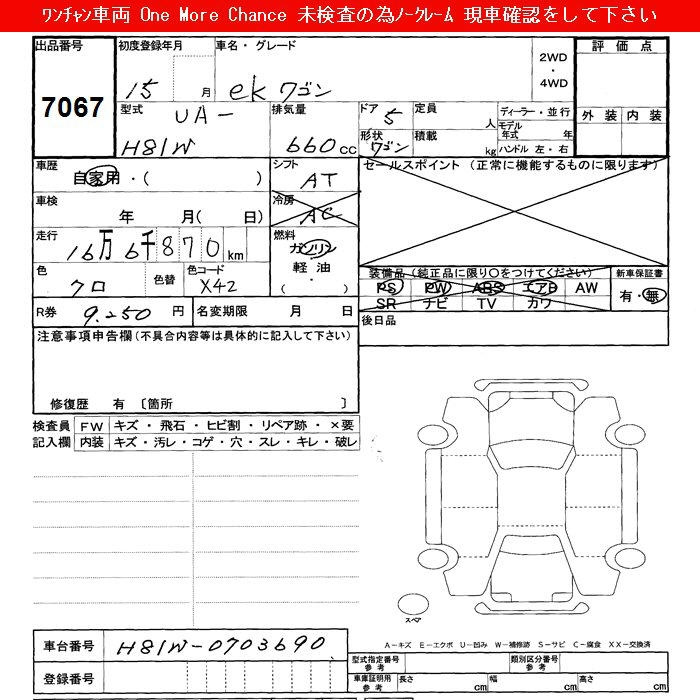 ﾜﾝﾁｬﾝ車両 One More Chance 未検査の為ﾉｰｸﾚｰﾑ 現車確認をして下さい
出品番号 初度登録年月 車名・グレード 評価点
7067 15 月 ekワゴン 2WD ・ 4WD
型式 排気量 ドア 定員 ディーラー・並行 外装 内装
UA- 5 人 モデル年式 年
H81W 660cc 形状 ワゴン 積載 kg ハンドル 左・右
車歴 自家用・( ) シフト AT セールスポイント (正常に機能するものに限ります)
車検 年 月( 日) 冷房 AC
走行 16万6千870km 燃料 ガソリン
軽油
・( )
色 クロ 色替 色コード X42 装備品(純正品に限り○をつけてください) 新車保証書
PS PW ABS エアB AW 有・無
SR ナビ TV カワ
R券 9,250円 名変期限 月 日 後日品
注意事項申告欄(不具合内容等は具体的に記入して下さい)
修復歴 有 〔箇所 〕
検査員 FW キズ・飛石・ヒビ割・リペア跡・×要
記入欄 内装 キズ・汚レ・コゲ・穴・スレ・キレ・破レ
スペア
A－キズ E－エクボ U－凹み W－補修跡 S－サビ C－腐食 XX－交換済
車台番号 H81W-0703690 型式指定番号 参考 類別区分番号 参考
登録番号 車庫証明用 参考 長さ cm 幅 cm 高さ cm